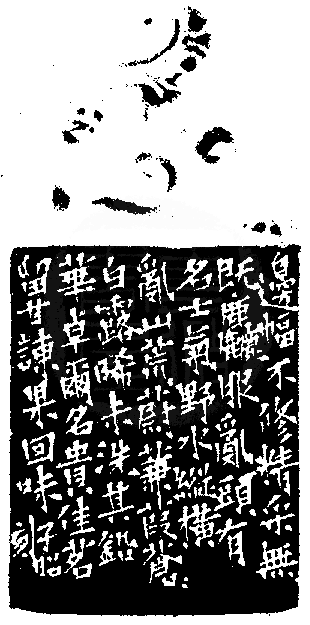 邊幅不修精采無
既麤服亂頭有
名士氣野水縱橫
亂山荒蔚蒹葭蒼〻
白露晞未洗其鉛
華卓爾名貴佳茗
留甘諫果回味子昭刻